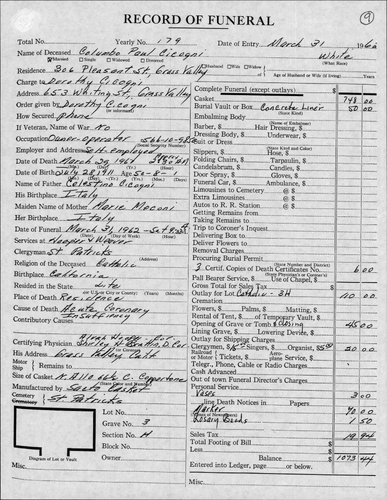 9
RECORD OF FUNERAL
Total No. Yearly No. 179 Date of Entry March 31 1962
Name of Deceased Columbo Paul Cicogni White
Married Single Widowed Divorced (What Race)
Residence 306 Pleasant St, Grass Valley Husband Wife Widow
Charge to Dorothy Cicogni Age of Husband or Wife (if living) Years
Address 653 Whiting St, Grass Valley
Order given by Dorothy Cicogni
(or informant)
How Secured phone
If Veteran, Name of War No
Occupation Owner-operator
(Social Security Number)
Employer and Address Self employed
Date of Death March 29, 1962
Date of Birth July 28 1911 Age 50-8-1
Name of Father Celestino Cicogni
His Birthplace Italy
Maiden Name of Mother Marie
Her Birthplace Italy
Date of Funeral March 31, 1962 - Sat
(Date) (Day of Week) (Hour)
Services at Hooper & Weaver
Clergyman St Patricks
Religion of the Deceased Catholic
Birthplace California
Resided in the State Life
(or U.S. or City or County) (Years)
Place of Death Residence
Cause of Death Acute Coronary
Contributory Causes Insufficiency
Certifying Physician
His Address Grass Valley Calif
Motor
Ship Remains to
Size of Casket
Manufactured by
Cemetery
Crematory St. Patricks
Lot No.
Grave No. 3
Section No. H
Block No.
Owner
Diagram of Lot or Vault
Misc.
Complete Funeral (except outlays)
Casket 748 00
Burial Vault or Box Concrete Liner 50 00
(State Kind)
Embalming Body
(Name of Embalmer)
Barber, Hair Dressing,
Dressing Body, Underwear,
Suit or Dress
(State Kind and Color)
Slippers, Hose,
Folding Chairs, Tarpaulin,
Candelabrum, Candles,
Door Spray, Gloves,
Funeral Car, Ambulance
Limousines to Cemetery @
Extra Limousines @
Autos to R. R. Station @
Getting Remains from
Taking Remains to
Trip to Coroner's Inquest
Delivering Box to
Deliver Flowers to
Removal Charges
Procuring Burial Permit
(State Number and District)
3 Certif. Copies of Death Certificates No. 6 00
Pall Bearer Service, Use of Chapel
Gross Total for Sales Tax
Outlay for Lot Catholic - 3H 110 00
Cremation
Flowers, Palms, Matting,
Rental of Tent, of Temporary Vault,
Opening of Grave or Tomb & Closing 45 00
Lining Grave, Lowering Device,
Outlay for Shipping Charges
Clergymen, $15 Singers, Organist, $5.00 20 00
Railroad
or Motor Tickets, Aeroplane Service,
Telegr., Phone, Cable or Radio Charges
Cash Advanced
Out of town Funeral Director's Charges
Personal Service
3 00
line Death Notices in Papers
(Names of Newspapers)
Marker 70 00
Rosary Beads 1 50
Sales Tax 19 94
Total Footing of Bill
Less
Balance 1073 44
Entered into Ledger, page or below.
Misc.